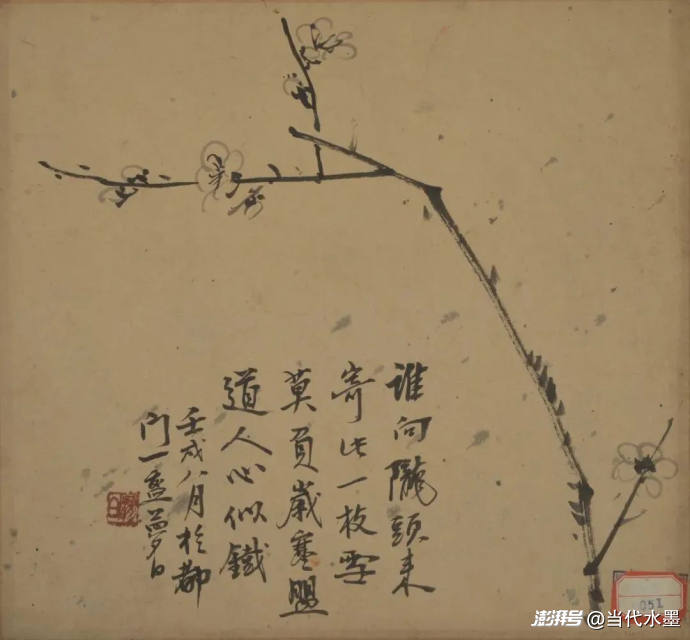 誰向隴頭来
寄此一枝雪
莫負歲寒盟
道人心似鐵
壬戌八月於都
門一盦夢白
051
澎湃号@当代水墨